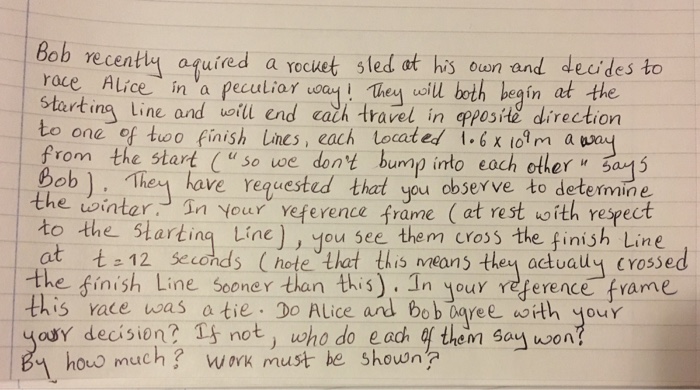 Bob recently aquired a rocket sled of his own and decides to
race Alice in a peculiar way! They will both begin at the
starting line and will end each travel in opposite direction
to one of two finish lines, each located 1.6 x 10⁹m away
from the start ("so we don't bump into each other" says
Bob). They have requested that you observe to determine
the winter. In your reference frame (at rest with respect
to the starting Line), you see them cross the finish Line
at t=12 seconds (note that this means they actually crossed
the finish Line sooner than this). In your reference frame
this race was a tie. Do Alice and Bob agree with your
your decision? If not, who do each of them say won?
By how much? Work must be shown?